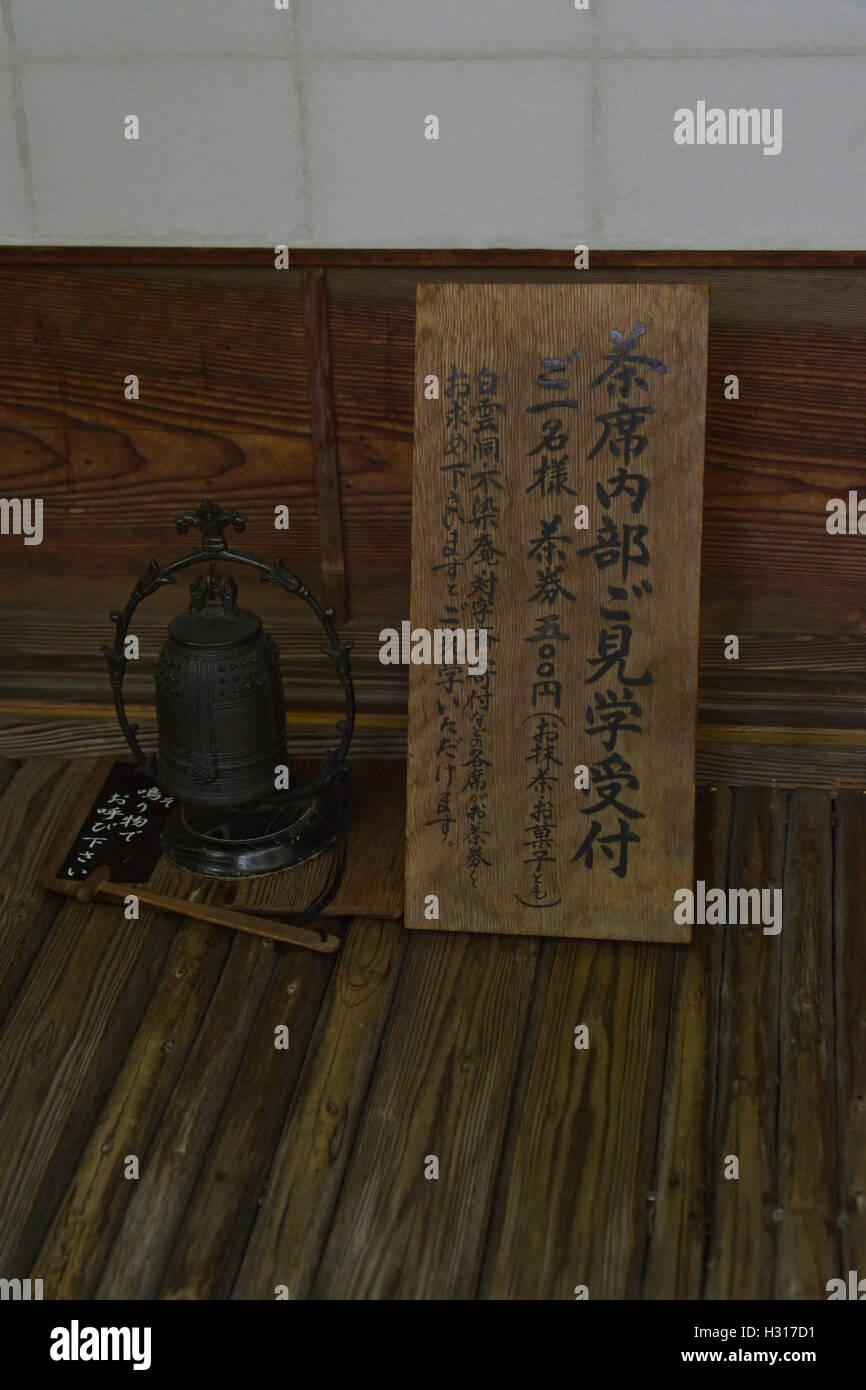 茶席内部ご見学受付
ご一名様 茶券 五〇〇円(お抹茶・お菓子とも)
白雲洞・不染庵・対字 寄付などの各席がお茶券と
お求め下さいますとご見学いただけます。
鳴り物で
お呼び下さい
alamy stock photo
alamy
a
H317D1
www.alamy.com